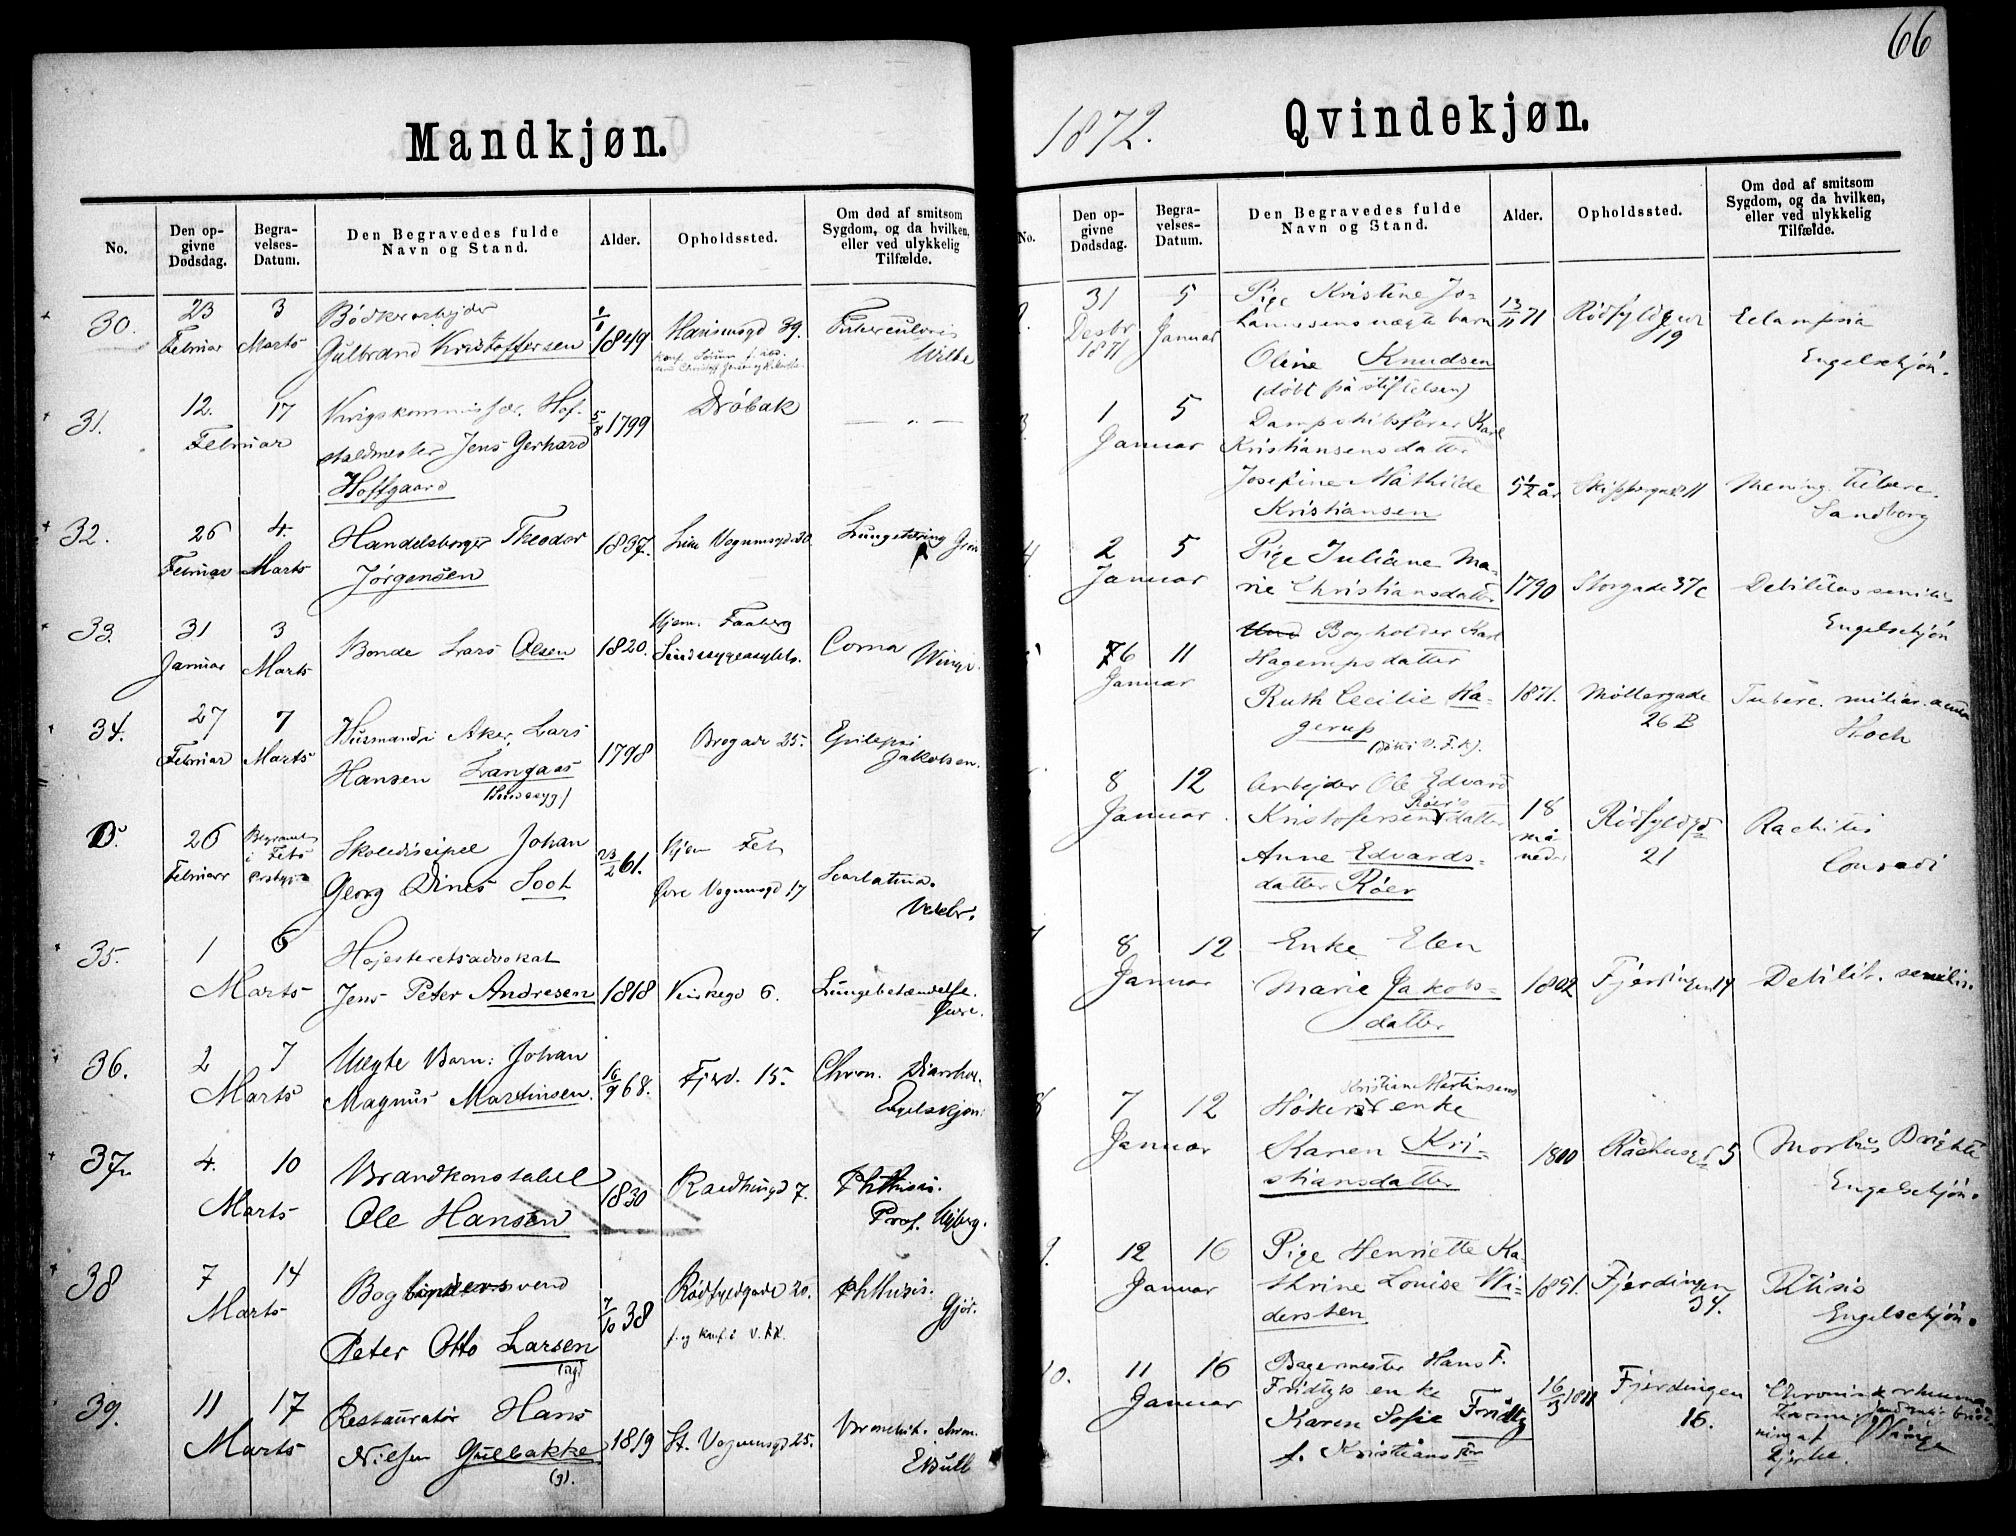 66
Mandkjøn.
No.
Den op-
givne
Dødsdag.
Begra-
velses-
Datum.
Den Begravedes fulde
Navn og Stand.
Alder.
Opholdssted.
Om død af smitsom
Sygdom, og da hvilken,
eller ved ulykkelig
Tilfælde.
30.
23
Februar
3
Marts
Bødkerarbejder
Gulbrand Kristoffersen
1849
39.
31.
12.
Februar
17
Krigskommissær, Hof-
staldmester Jens Gerhard
Hoffgaard
5/8 1799
Drøbak
— „ —
32.
26
Februar
4.
Marts
Handelsborger Theodor
Jørgensen
1837.
Lille Vognmgd 30
Lungetæring
33.
31
Januar
3
Marts
Bonde Lars Olsen
1820.
Hjem. Faaberg
Sindssygeasylet.
Coma
Winge.
34.
27
Februar
7
Marts
Husmand i Aker, Lars
Hansen Langaas
(Sindssyg)
1798
Brogade 25.
Epilepsi
Jakobsen.
D.
26
Februar
Begravet
i Fets
Skolediscipel Johan
Georg Dines Soot
23/2 61.
Hjem Fet
Øvre Vognmgd 17
Scarlatina.
35.
1
Marts
6
Højesteretsadvokat
Jens Peter Andresen
1818
Kirkegd 6.
Lungebetændelse.
36.
2
Marts
7
Uægte Barn: Johan
Magnus Martinsen.
16/9 68.
Fjerd. 15.
Chron. Diarrhoe.
Engelskjøn.
37.
4.
Marts
10
Brandkonstabel
Ole Hansen
1830
Raadhusgd 7.
Phthisis.
Prof.
38
7
Marts
14
Bogbindersvend
Peter Otto Larsen
(ug)
7/10 38
Rødfyldgade 20.
Phthisis.
Gjør.
39.
11
Marts
17
Restauratør Hans
Nilsen Gulbakke
(g).
1819
St. Vognmsgd 25.
Bronchit. chron.
1872.
Qvindekjøn.
No.
Den op-
givne
Dødsdag.
Begra-
velses-
Datum.
Den Begravedes fulde
Navn og Stand.
Alder.
Opholdssted.
Om død af smitsom
Sygdom, og da hvilken,
eller ved ulykkelig
Tilfælde.
31
Desbr
1871
5
Januar
Pige Kristine Jo-
hannesens uægte barn
Oline Knudsen
(døbt på stiftelsen)
13/11 71
19
Eclampsia
Engelschjøn.
1
Januar
5
Dampskibsfører Karl
Kristiansens datter
Josefine Mathilde
Kristiansen
5 1/2 år
Skippergade 11
Mening. Tuberc.
Sandberg
2
Januar
5
Pige Juliane Ma-
rie Christiansdatter
1790
Storgade 37c
Debilitas senilis
Engelschjøn
6
Januar
11
Bogholder Karl
Hagerups datter
Ruth Cecilie Ha-
gerup
1871.
Møllergade
26 B
Tuberc. miliar. acuta
Koch
8
Januar.
12
Arbejder Ole Edvard
Kristofersen Røers datter
Anne Edvards-
datter Røer
18
må
neder
Rødfyldgd
21
Rachitis
Conradi
8
Januar
12
Enke Elen
Marie Jakobs-
datter
1802
Fjerdingen 14
Debilit. senilis.
7
Januar
12
Kristian Martinsens
Høker enke
Karen Kri-
stiansdatter
1800
Rådhusgd 5
Morbus Brightii
Engelschjøn.
9.
12
Januar
16
Pige Henriette Ka-
thrine Louise Wi-
dersten
1851.
Fjerdingen
34.
Phtisis
Engelschjøn.
10.
11
Januar
16
Bagermester Hans F.
Fridtys enke
Karen Sofie Fridty
f. Kristianson
16/3 1811
Fjerdingen
16.
Winge